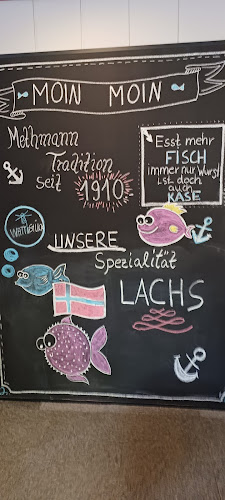 MOIN MOIN
Methmann
Tradition
Seit 1910
Esst mehr
FISCH
immer nur Wurst
ist doch
auch
KÄSE
UNSERE
Spezialität
LACHS